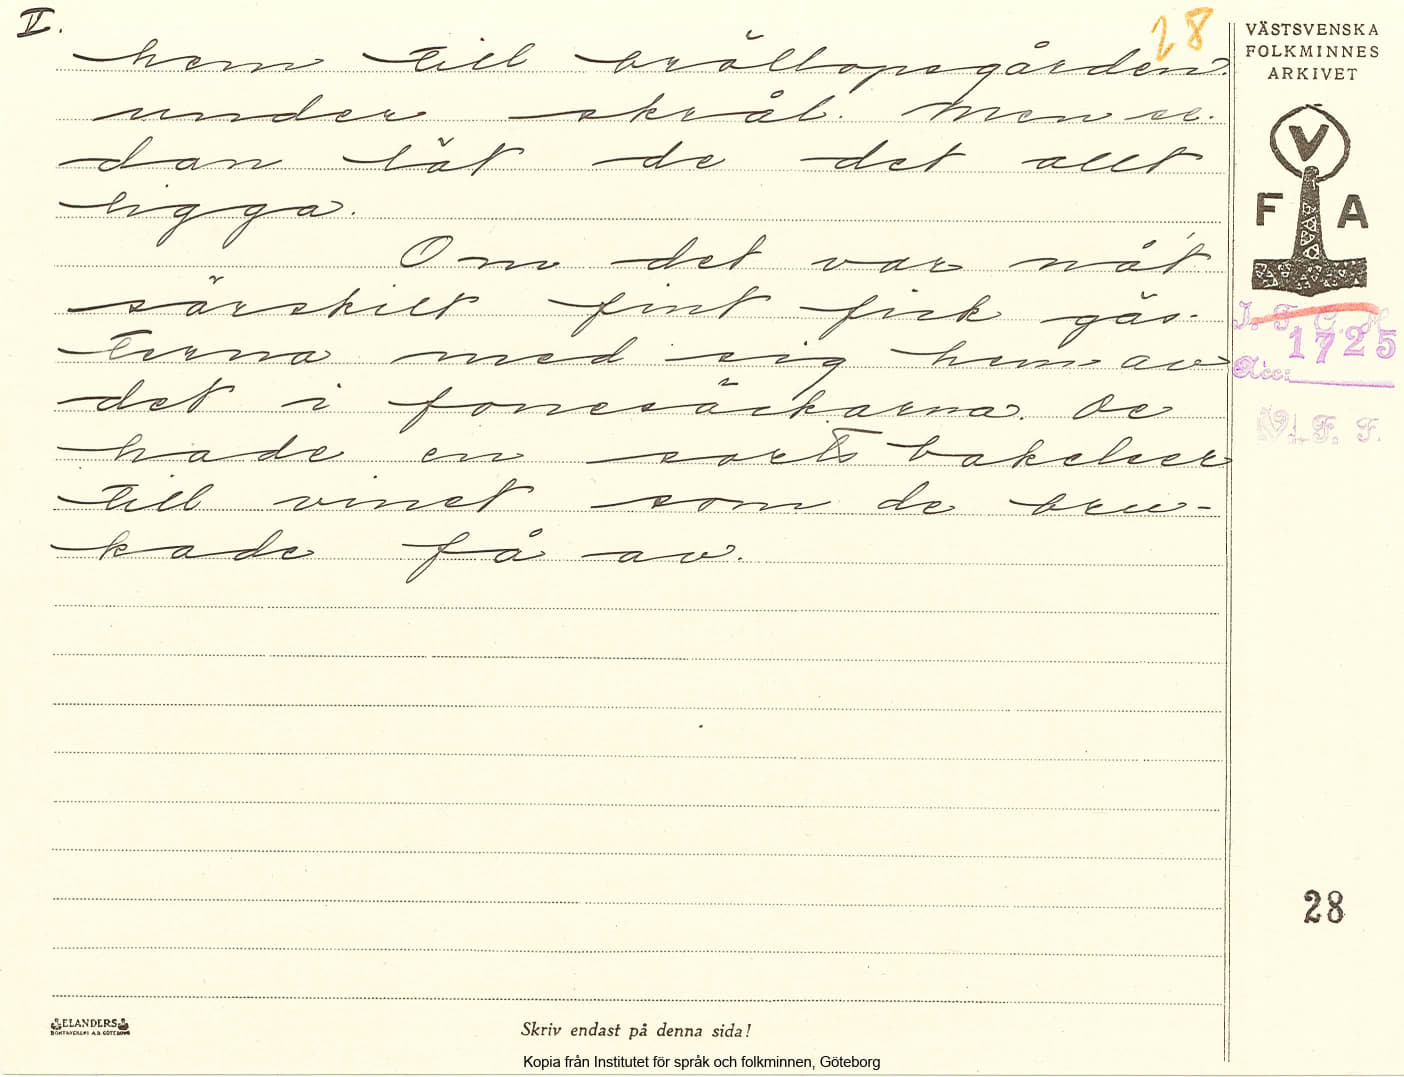 V.
28
hem till bröllopsgården
under skrål. Men se-
dan lät de det allt
ligga.
Om det var nåt
särskilt fint fick gäs-
terna med sig hem av
det i fonesäckarna. De
hade en sorts bakelser
till vinet som de bru-
kade få av.
VÄSTSVENSKA
FOLKMINNES
ARKIVET
V
F A
I. F. G. H.
1725
Acc:
V. F. F.
28
ELANDERS
BOKTRYCKERI A.B. GÖTEBORG
Skriv endast på denna sida!
Kopia från Institutet för språk och folkminnen, Göteborg